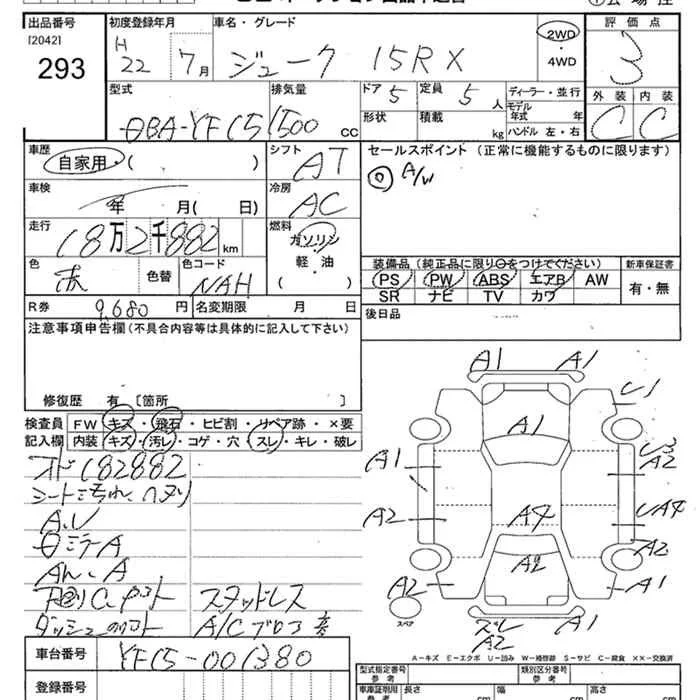 出品番号 初度登録年月 車名・グレード 評価点
[2042] H
293 22 7月 ジューク 15RX 2WD 4WD 3
型式 排気量 ドア 5 定員 5人 ディーラー・並行 外装 内装
DBA-YF15 1500 cc 形状 積載 kg モデル年式 年 ハンドル 左・右 C C
車歴 シフト セールスポイント (正常に機能するものに限ります)
自家用・( ) AT ◎ A/W
車検 冷房
年 月( 日) AC
走行 燃料
18万2千882km ガソリン 軽・油 ( )
色 色替 色コード 装備品(純正品に限り○をつけてください) 新車保証書
赤 NAH PS PW ABS エアB AW 有・無
SR ナビ TV カワ
R券 9,680円 名変期限 月 日 後日品
注意事項申告欄(不具合内容等は具体的に記入して下さい)
修復歴 有 [箇所 ]
検査員 FW キズ・飛石・ヒビ割・リペア跡・×要
記入欄 内装 キズ・汚レ・コゲ・穴・スレ・キレ・破レ
オド182882
シート汚れ、ヘタリ
A.U
ミラーA
A
スタッドレス
A/C
A1 A1
U1
A1
A1
U3
A2
A2
A4
UA4
A2
A2
A2
A1
スペア
スレ
A2
A1
A-キズ E-エクボ U-凹み W-補修跡 S-サビ C-腐食 XX-交換済
車台番号 YF15-001380
登録番号
型式指定番号 類別区分番号
参考 参考
車庫証明用 長さ 幅 高さ
cm cm cm